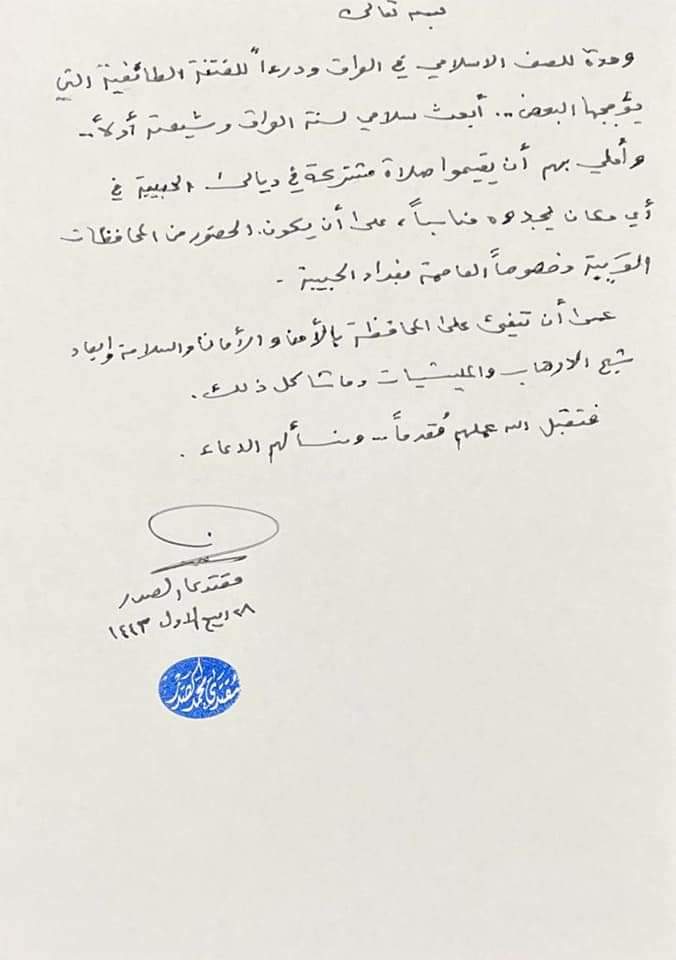 بسمه تعالى
وحدة للصف الاسلامي في العراق ودرءاً للفتنة الطائفية التي
يؤججها البعض .. أبعث سلامي لسنة العراق وشيعته أولاً..
وأملي بهم أن يقيموا صلاة مشتركة في ديالى الحبيبة في
أي مكان يجدوه مناسباً، على أن يكون الحضور من المحافظات
القريبة وخصوصاً العاصمة بغداد الحبيبة .
عسى أن تنفئ على المحافظة بالأمن والأمان والسلامة وإبعاد
شبح الارهاب والميليشيات وما شاكل ذلك .
فتقبل الله عملهم مُقدماً .. ونسألهم الدعاء .
مقتدى الصدر
٢٨ ربيع الاول ١٤٤٣
مقتدى محمد الصدر